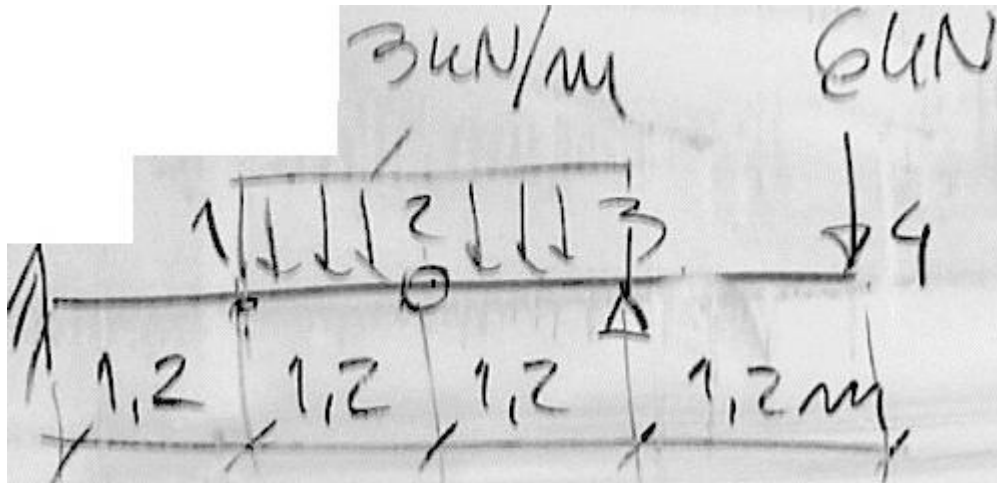 3kN/m 6kN
1 2 3 4
1,2 1,2 1,2 1,2m